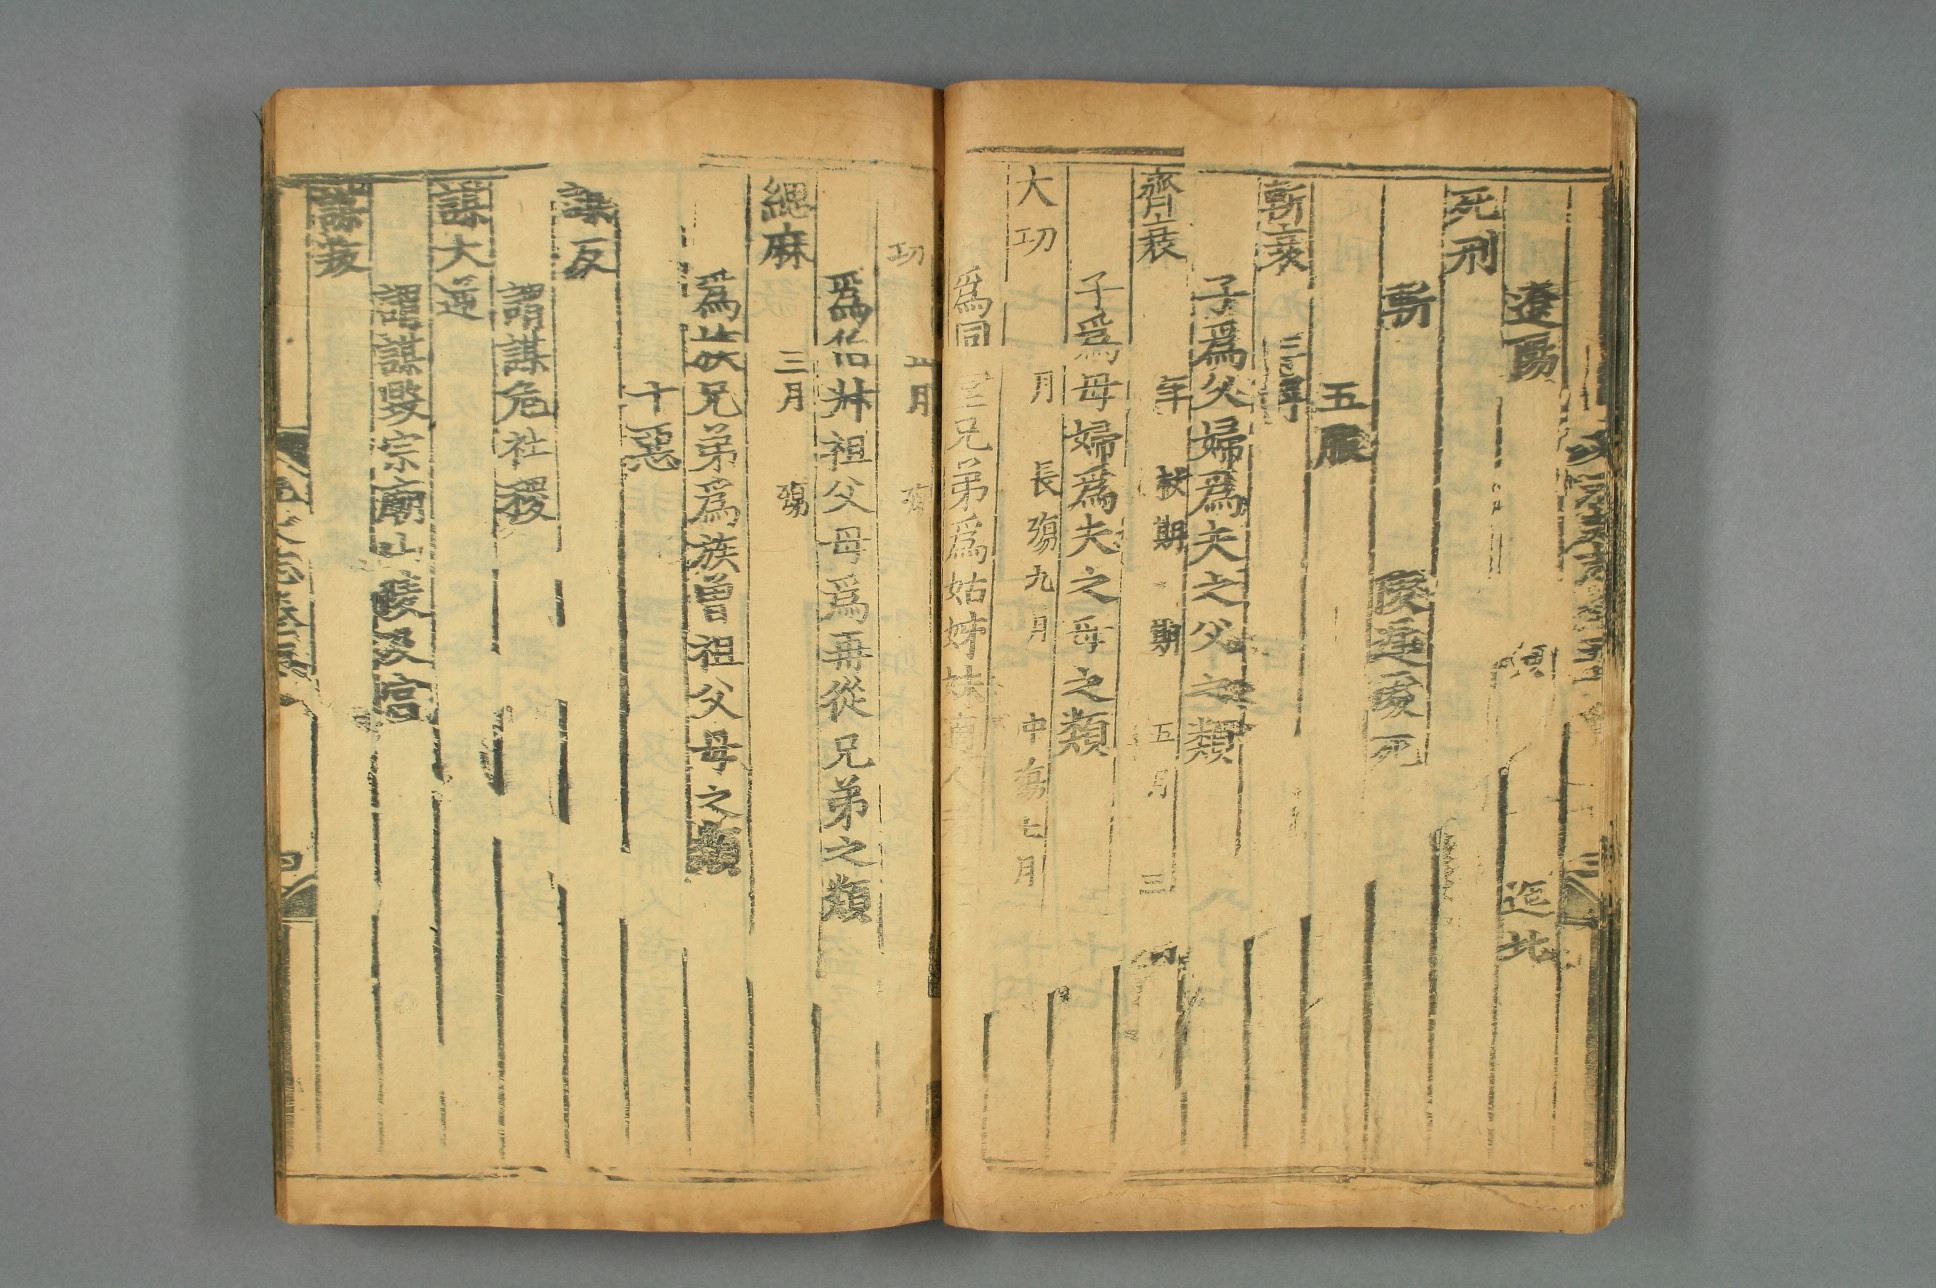 遼陽 迤北
死刑
斬 陵遲處死
五服
斬衰 三年
子爲父婦爲夫之父之類
齊衰 年 杖期 期 五月 三
子爲母婦爲夫之母之類
大功 月 長殤九月 中殤七月
爲同堂兄弟爲姑姊妹適人者
功 五月 殤
爲伯叔祖父母爲再從兄弟之類
緦麻 三月 殤
爲 兄弟爲族曾祖父母之類
十惡
謀反
謂謀危社稷
謀大逆
謂謀毀宗廟山陵及宮
謀叛
四